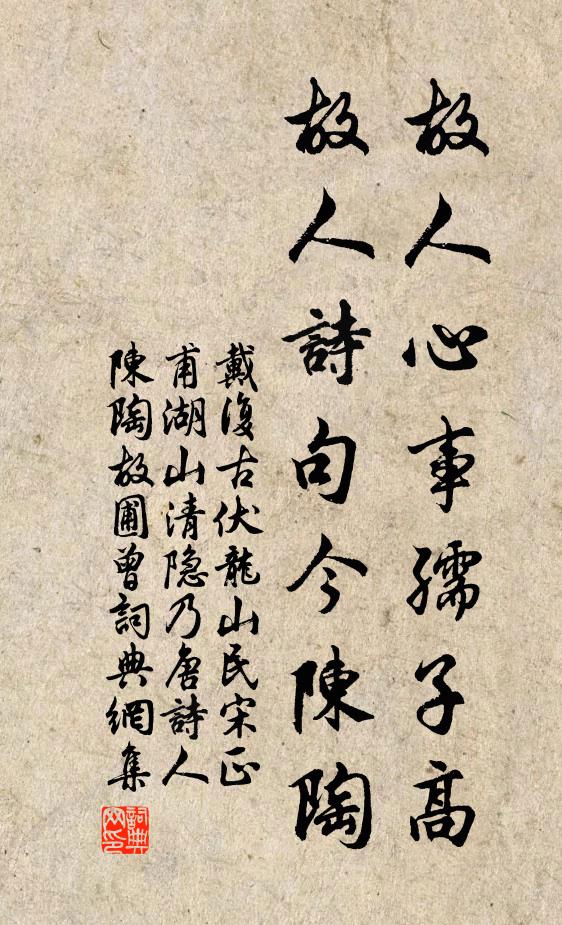 故人心事孺子高
故人詩句今陳陶
戴復古伏龍山民宋正
甫湖山清隐乃唐詩人
陳陶故圃曾詞典網集
詞典网印